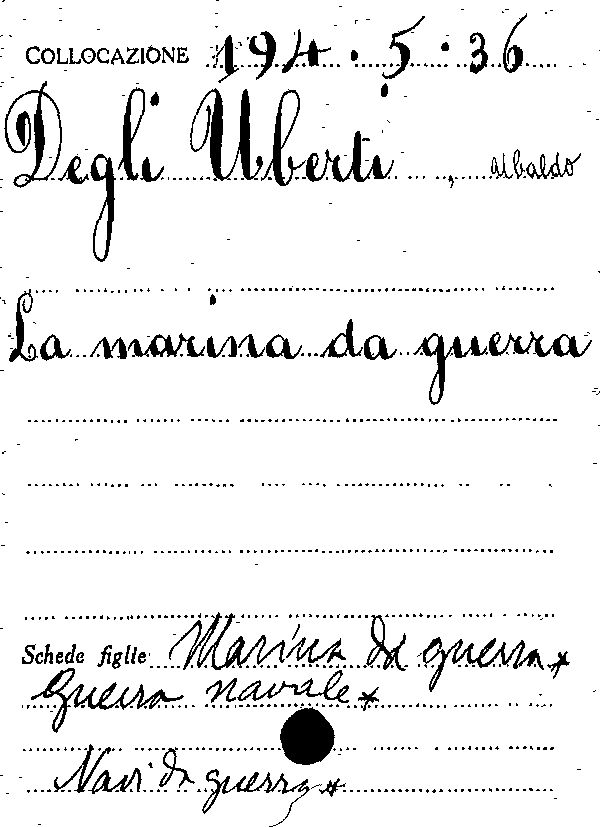 COLLOCAZIONE 194.5.36
Degli Uberti , ubaldo
La marina da guerra
Schede figlie Marina da guerra x
Guerra navale x
Navi da guerra x